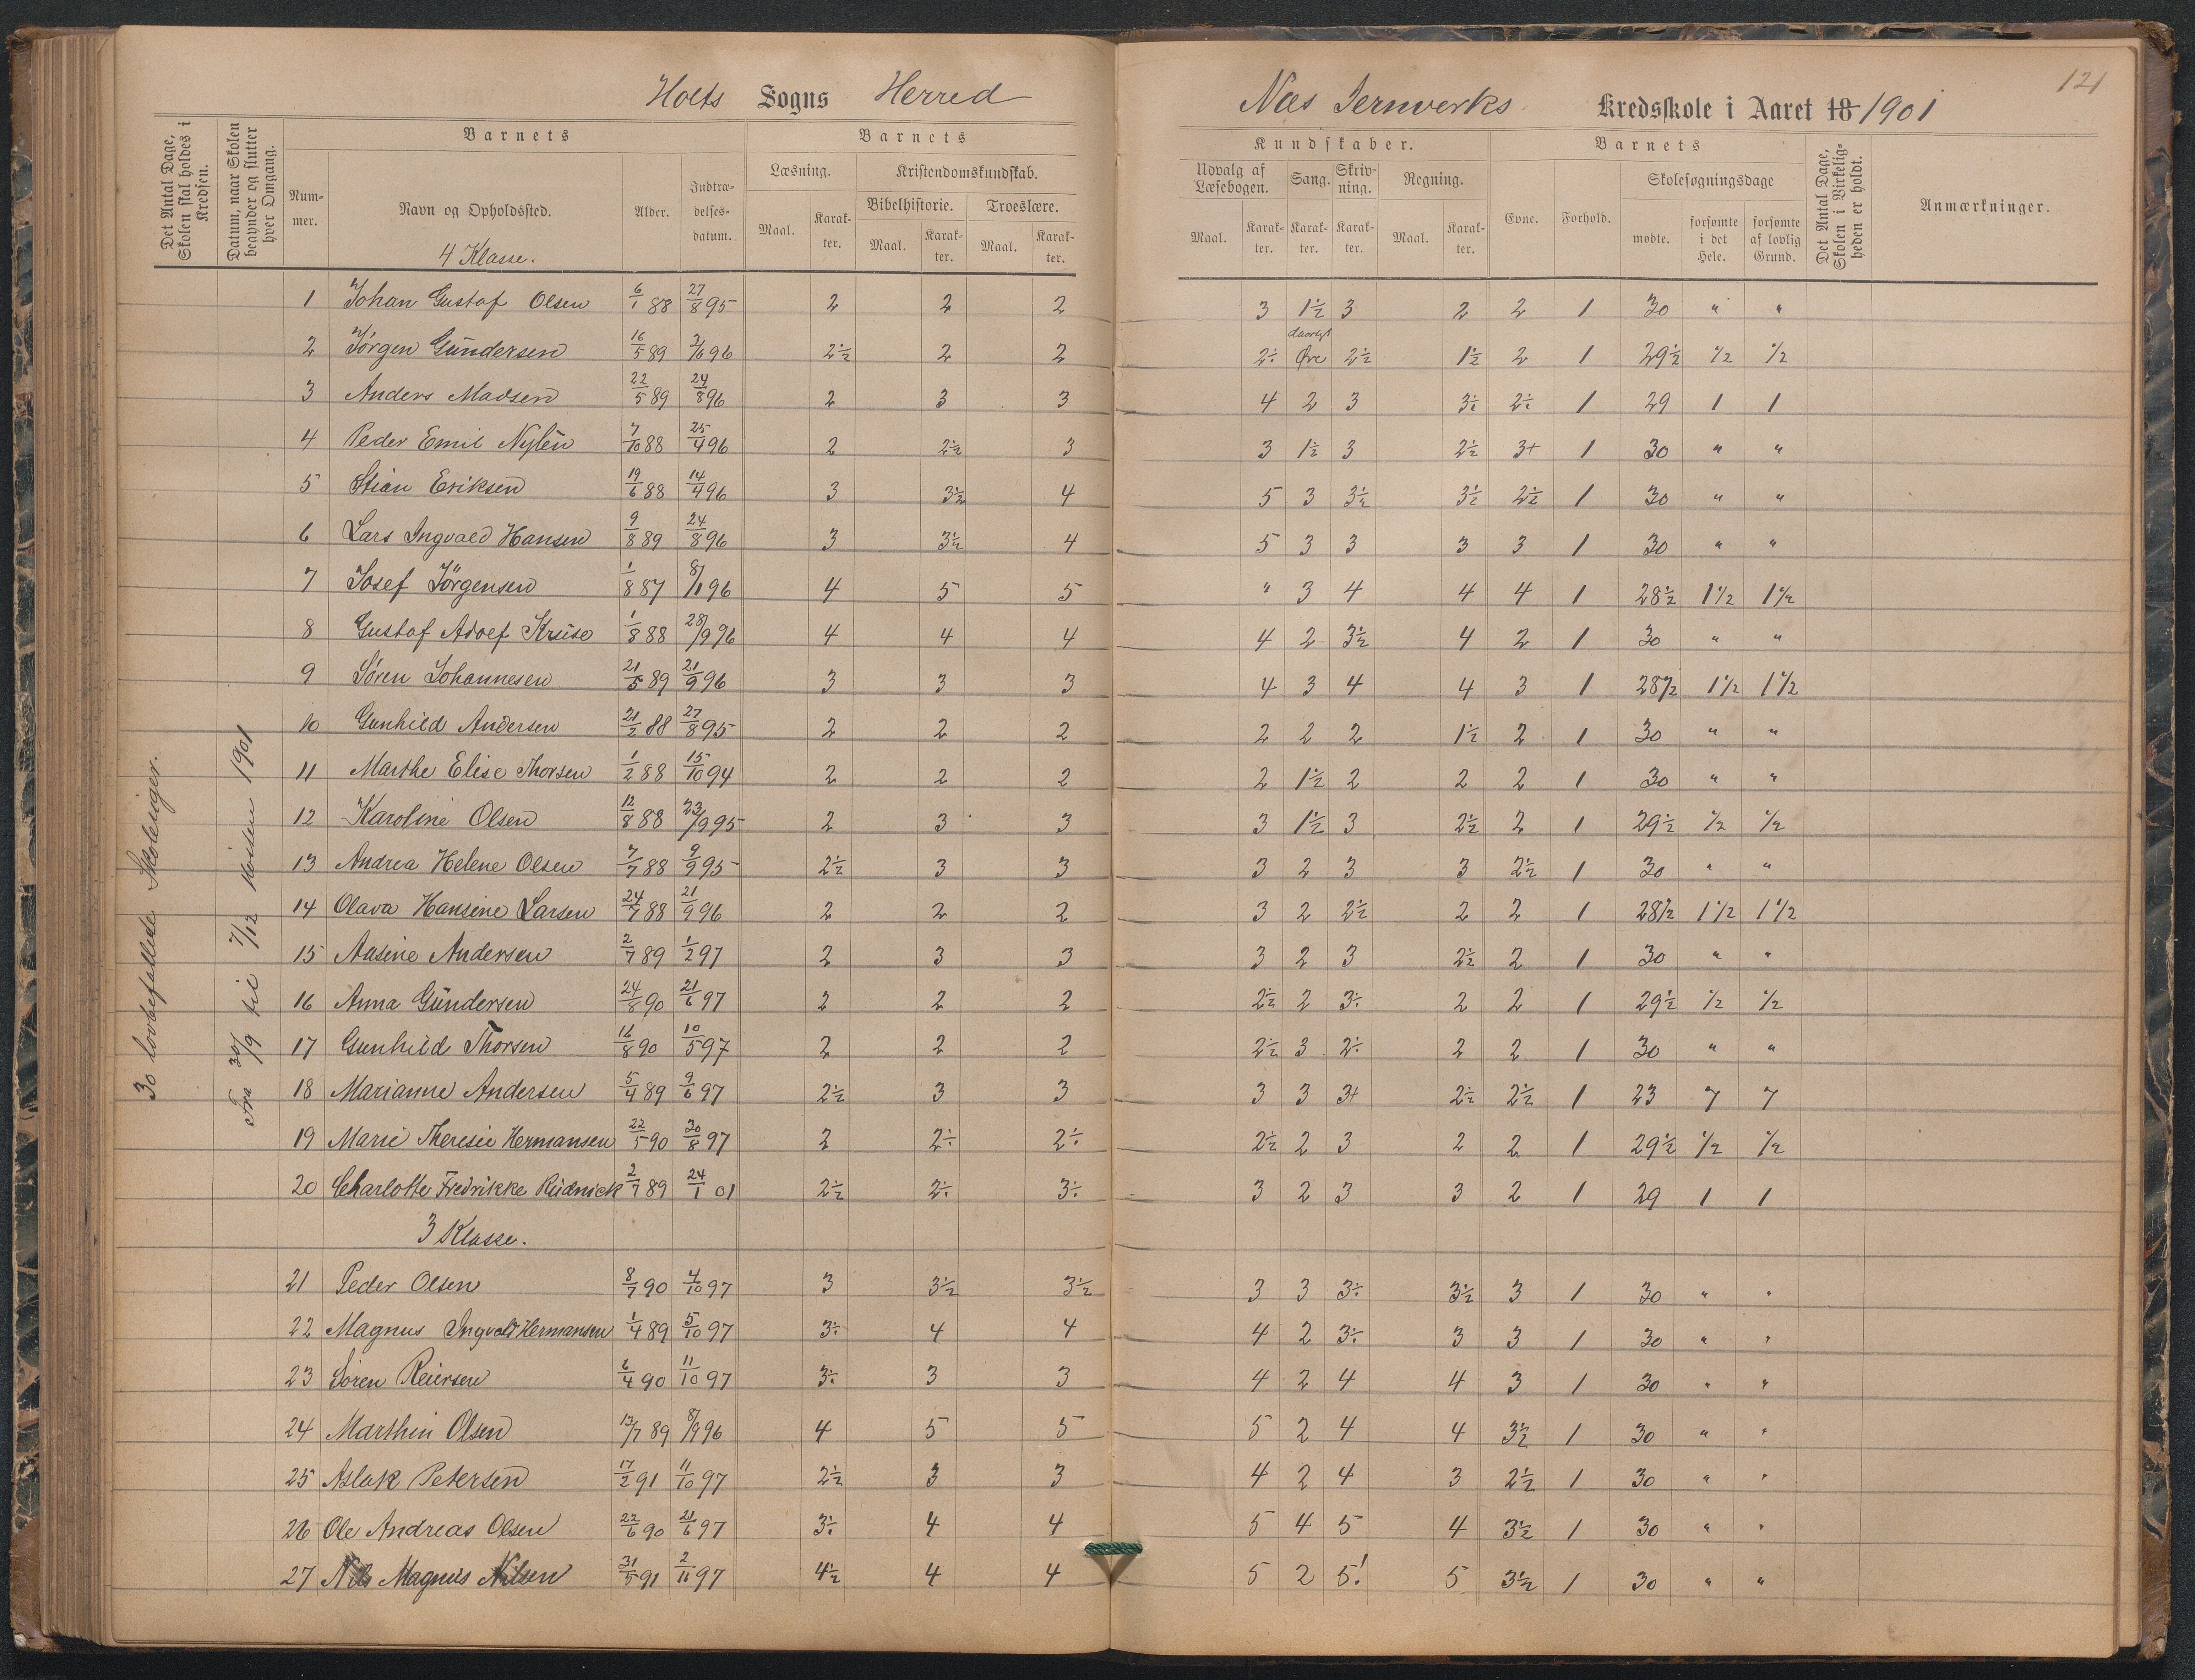 Holts Sogns Herred
Næs Jernverks Kredsskole i Aaret 18 1901
121
Det Antal Dage, Skolen skal holdes i Kredsen.
Datum, naar Skolen begynder og slutter hver Omgang.
Barnets
Nummer.
Navn og Opholdssted.
Alder.
Indtrædelsesdatum.
Barnets
Læsning.
Maal.
Karakter.
Kristendomskundskab.
Bibelhistorie.
Maal.
Karakter.
Troeslære.
Maal.
Karakter.
Kundskaber.
Udvalg af Læsebogen.
Maal.
Karakter.
Sang.
Karakter.
Skrivning.
Karakter.
Regning.
Maal.
Karakter.
Barnets
Evne.
Forhold.
Skolesøgningsdage
mødte.
forsømte i det Hele.
forsømte af lovlig Grund.
Det Antal Dage, Skolen i Virkeligheden er holdt.
Anmærkninger.
30 lovbefallede Skoleuger.
Fra 30/9 til 7/12 1901
4 Klasse.
1 Johan Gustaf Olsen 6/1 88 27/8 95 2 2 2 3 1½ 3 2 2 1 30 " "
2 Jörgen Gundersen 16/5 89 3/6 96 2½ 2 2 2÷ daarligt Øre 2½ 1½ 2 1 29½ ½ ½
3 Anders Madsen 22/5 89 24/8 96 2 3 3 4 2 3 3÷ 2÷ 1 29 1 1
4 Peder Emil Nylén 7/10 88 25/4 96 2 2½ 3 3 1½ 3 2½ 3+ 1 30 " "
5 Stian Eriksen 19/6 88 14/4 96 3 3½ 4 5 3 3½ 3½ 2½ 1 30 " "
6 Lars Ingvald Hansen 9/8 89 24/8 96 3 3½ 4 5 3 3 3 3 1 30 " "
7 Josef Jörgensen 1/8 87 8/1 96 4 5 5 " 3 4 4 4 1 28½ 1½ 1½
8 Gustaf Adolf Kruse 1/8 88 28/9 96 4 4 4 4 2 3½ 4 2 1 30 " "
9 Sören Johannesen 21/5 89 21/9 96 3 3 3 4 3 4 4 3 1 28½ 1½ 1½
10 Gunhild Andersen 21/2 88 27/8 95 2 2 2 2 2 2 1½ 2 1 30 " "
11 Marthe Elise Thorsen 1/2 88 15/10 94 2 2 2 2 1½ 2 2 2 1 30 " "
12 Karoline Olsen 12/8 88 23/9 95 2 3 3 3 1½ 3 2½ 2 1 29½ ½ ½
13 Andrea Helene Olsen 7/7 88 9/9 95 2½ 3 3 3 2 3 3 2½ 1 30 " "
14 Olava Hansine Larsen 24/7 88 21/9 96 2 2 2 3 2 2½ 2 2 1 28½ 1½ 1½
15 Aasine Andersen 2/7 89 1/2 97 2 3 3 3 2 3 2½ 2 1 30 " "
16 Anna Gundersen 24/8 90 21/6 97 2 2 2 2½ 2 3÷ 2 2 1 29½ ½ ½
17 Gunhild Thorsen 16/8 90 10/5 97 2 2 2 2½ 3 2÷ 2 2 1 30 " "
18 Marianne Andersen 5/4 89 9/6 97 2½ 3 3 3 3 3+ 2½ 2½ 1 23 7 7
19 Marie Theresie Hermansen 22/5 90 30/8 97 2 2÷ 2÷ 2½ 2 3 2 2 1 29½ ½ ½
20 Charlotte Fredrikke Rudnick 2/7 89 24/1 01 2½ 2÷ 3÷ 3 2 3 3 2 1 29 1 1
3 Klasse.
21 Peder Olsen 8/7 90 4/10 97 3 3½ 3½ 3 3 3÷ 3½ 3 1 30 " "
22 Magnus Ingvald Hermansen 1/4 89 5/10 97 3÷ 4 4 4 2 3÷ 3 3 1 30 " "
23 Sören Reiersen 6/4 90 11/10 97 3÷ 3 3 4 2 4 4 3 1 30 " "
24 Marthin Olsen 13/7 89 8/9 96 4 5 5 5 2 4 4 3½ 1 30 " "
25 Aslak Petersen 17/2 91 11/10 97 2½ 3 3 4 2 4 3 2½ 1 30 " "
26 Ole Andreas Olsen 22/6 90 21/6 97 3÷ 4 4 5 4 5 4 3½ 1 30 " "
27 Nils Magnus Nilsen 31/5 91 2/11 97 4½ 4 4 5 2 5! 5 3½ 1 30 " "